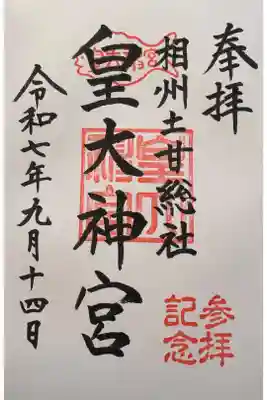 奉拝
相州土甘総社
皇大神宮
令和七年九月十四日
参拝
記念